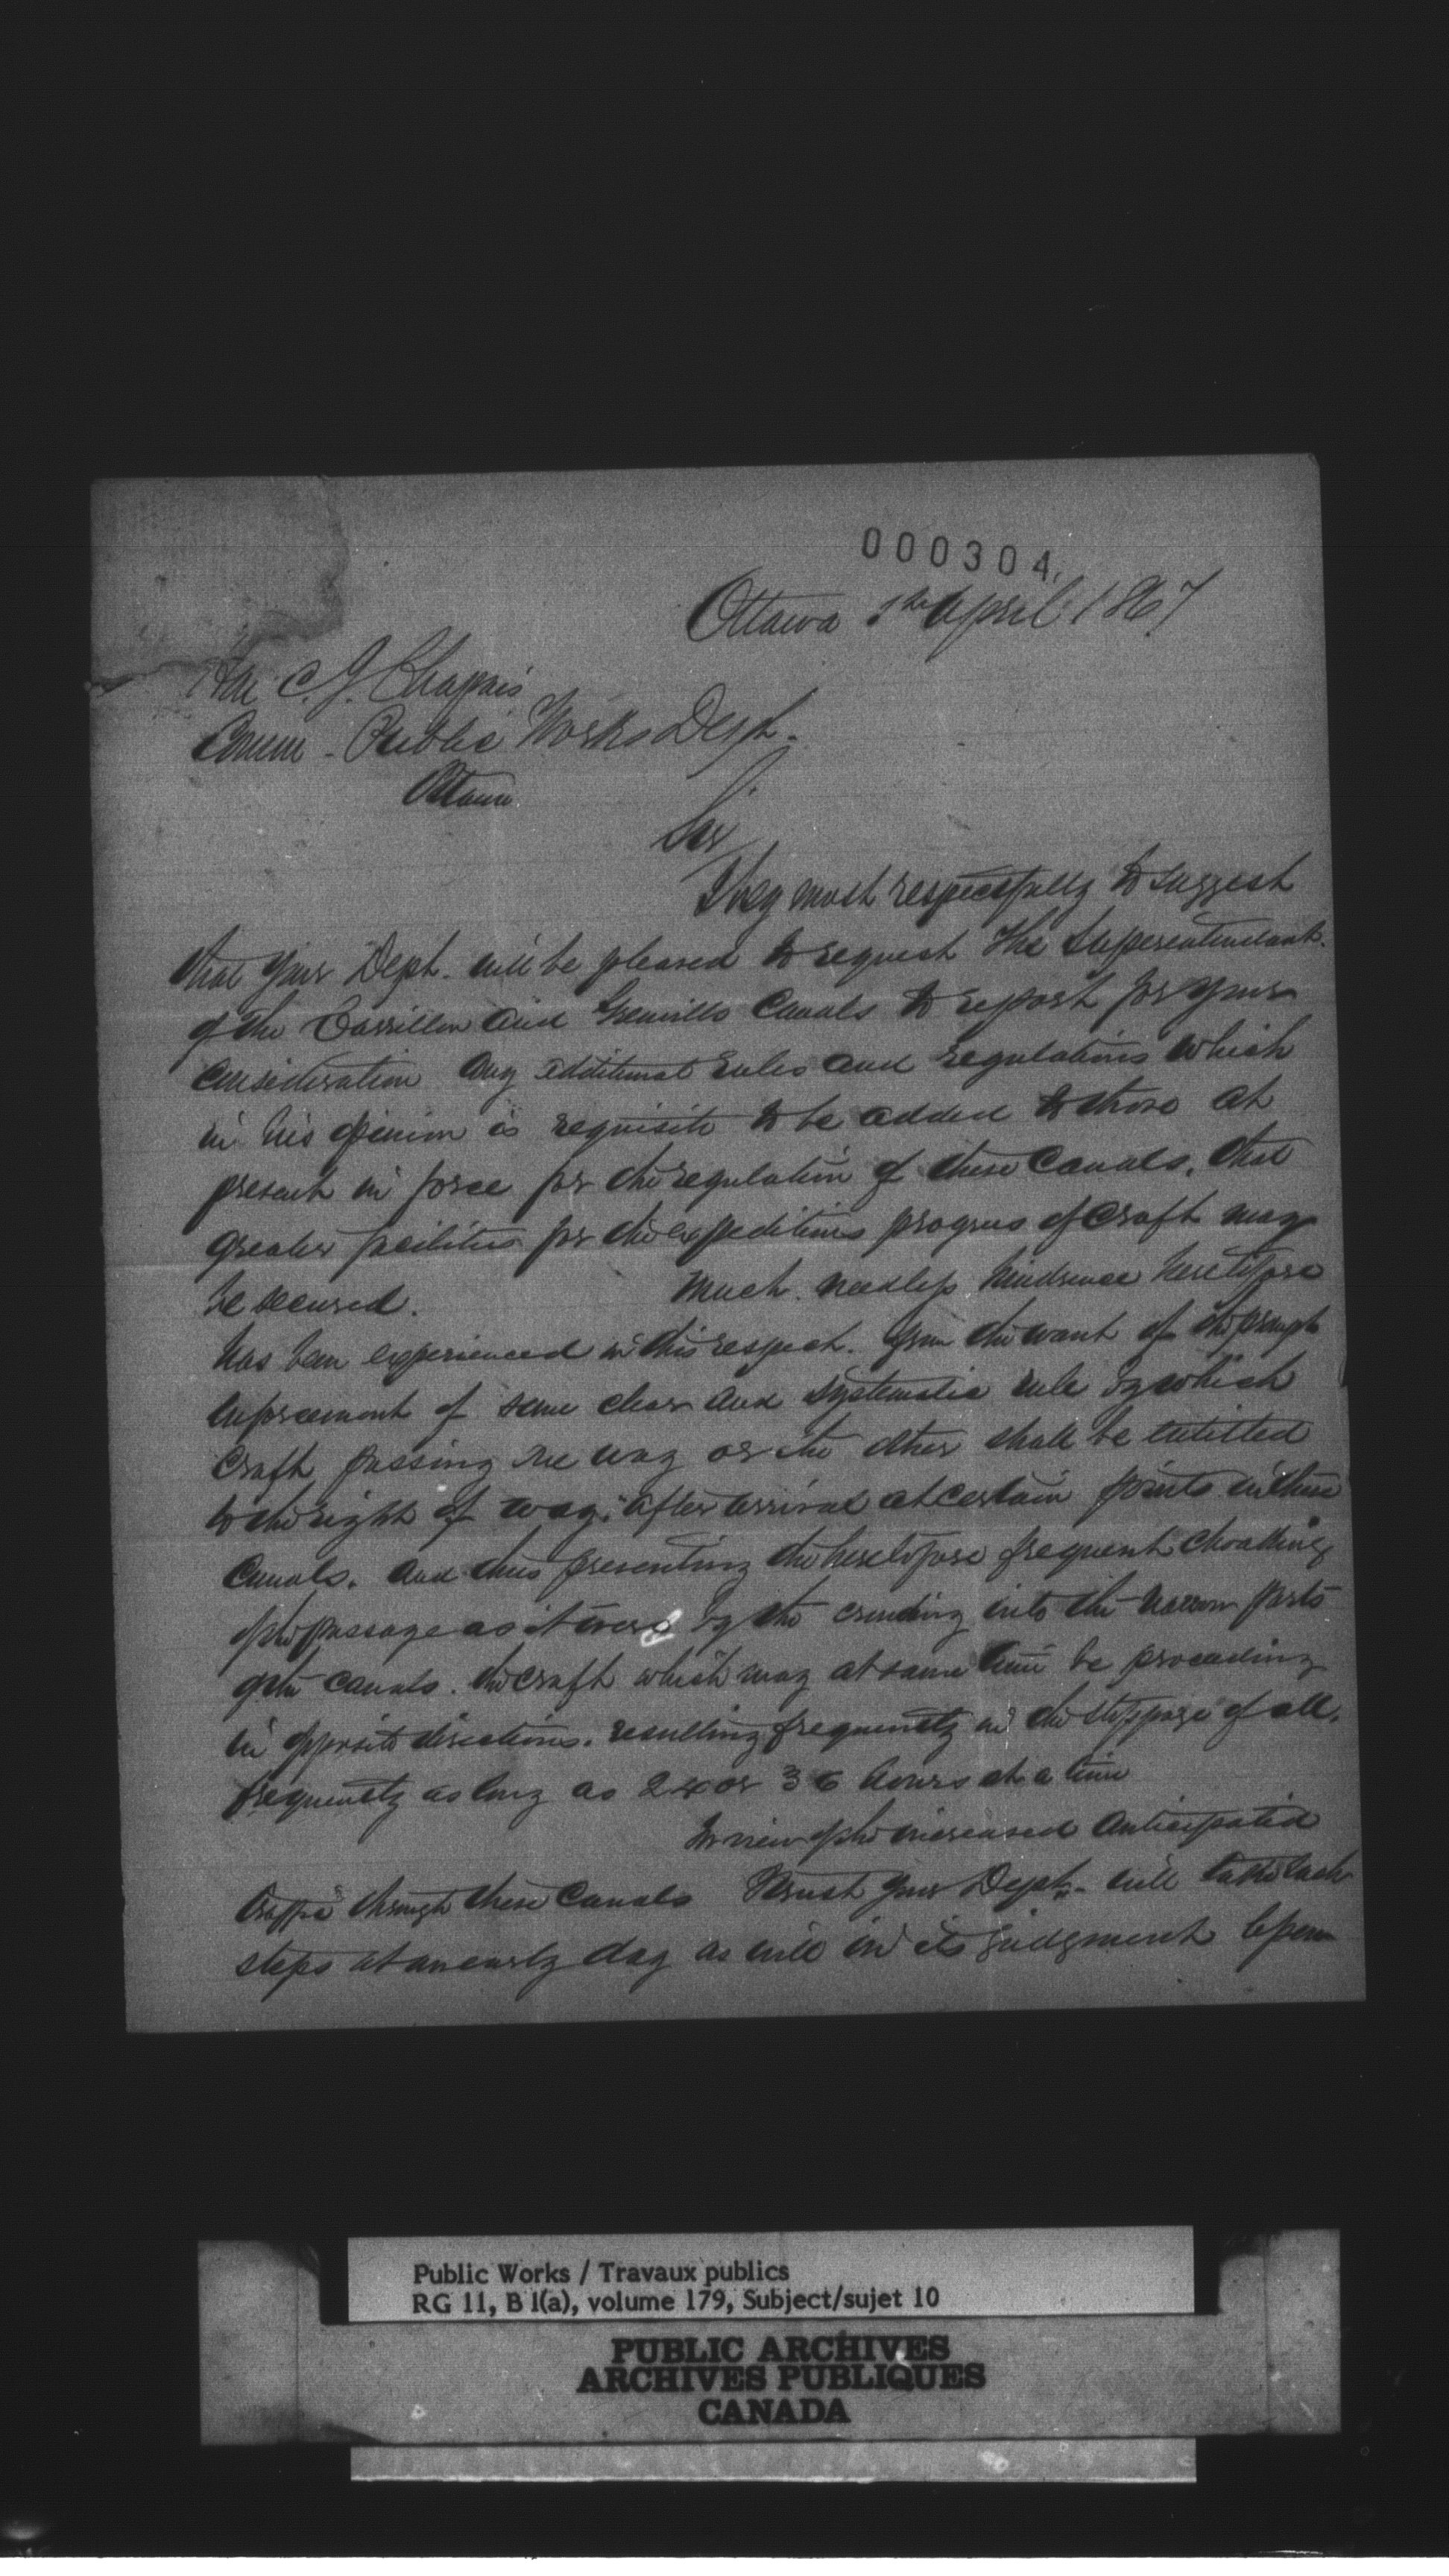 000304
Ottawa April 1867
Hon C. J. Chapais
Comm - Public Works Dept.
Ottawa
Sir
I beg most respectfully to suggest
that your Dept. will be pleased to request the Superintendant
of the Carrillon and Grenville Canals to report for your
consideration any additional rules and regulations which
in his opinion is requisite to be added to those at
present in force for the regulation of these Canals, that
greater facilities for the expeditious progress of craft may
be secured. Much needless hindrance heretofore
has been experienced in this respect. from the want of the prompt
enforcement of some clear and systematic rule by which
craft passing one way or the other shall be entitled
to the right of way, after arrival at certain points in these
Canals. and thus preventing the heretofore frequent choaking
of the passage as it were by the crowding into the narrow parts
of the canals. the craft which may at same time be proceeding
in opposite directions. resulting frequently in the stoppage of all,
frequently as long as 24 or 36 hours at a time
In view of the increased anticipated
traffic through these Canals I trust your Dept. will take such
steps at an early day as will in its judgment
Public Works / Travaux publics
RG 11, B 1(a), volume 179, Subject/sujet 10
PUBLIC ARCHIVES
ARCHIVES PUBLIQUES
CANADA